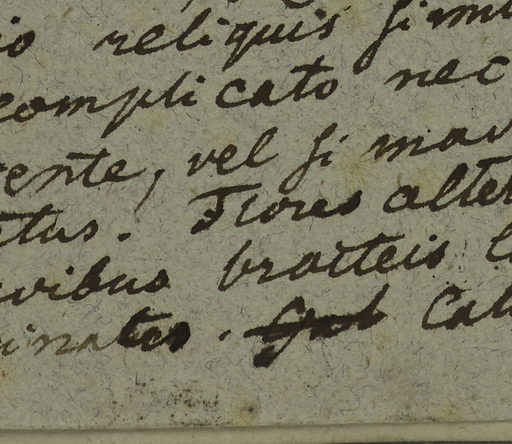 io reliquis simil
complicato nec
ente, vel si mav
tus. Flores alter
vibus bracteis
inatis. Cal